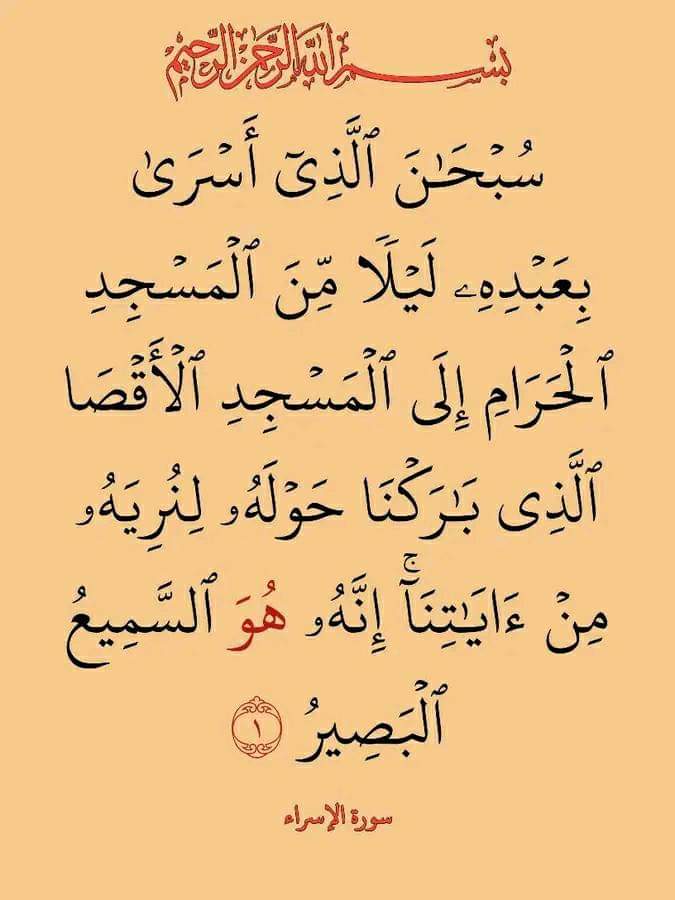 بسم الله الرحمن الرحيم
سُبْحَٰنَ ٱلَّذِىٓ أَسْرَىٰ
بِعَبْدِهِۦ لَيْلًا مِّنَ ٱلْمَسْجِدِ
ٱلْحَرَامِ إِلَى ٱلْمَسْجِدِ ٱلْأَقْصَا
ٱلَّذِى بَٰرَكْنَا حَوْلَهُۥ لِنُرِيَهُۥ
مِنْ ءَايَٰتِنَآ ۚ إِنَّهُۥ هُوَ ٱلسَّمِيعُ
ٱلْبَصِيرُ ١
سورة الإسراء